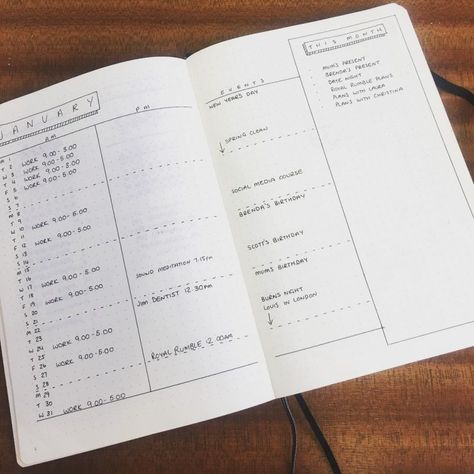 JANUARY
AM
PM
M 1
T 2 WORK 9.00-5.00
W 3 WORK 9.00-5.00
T 4 WORK 9.00-5.00
F 5 WORK 9.00-5.00
S 6
S 7
M 8
T 9
W 10 WORK 9.00-5.00
T 11
F 12 WORK 9.00-5.00
S 13
S 14
M 15
T 16
W 17 WORK 9.00-5.00
T 18
F 19 WORK 9.00-5.00
S 20
S 21
M 22
T 23
W 24 WORK 9.00-5.00
T 25
F 26 WORK 9.00-5.00
S 27
S 28
M 29
T 30
W 31 WORK 9.00-5.00
SOUND MEDITATION 7.15PM
JIM DENTIST 12.30PM
ROYAL RUMBLE 12.00AM
EVENTS
NEW YEAR'S DAY
SPRING CLEAN
SOCIAL MEDIA COURSE
BRENDA'S BIRTHDAY
SCOTT'S BIRTHDAY
MUMS BIRTHDAY
BURNS NIGHT
LOUIS IN LONDON
THIS MONTH
MUMS PRESENT
BRENDA'S PRESENT
DATE NIGHT
ROYAL RUMBLE PLANS
PLANS WITH LAURA
PLANS WITH CHRISTINA